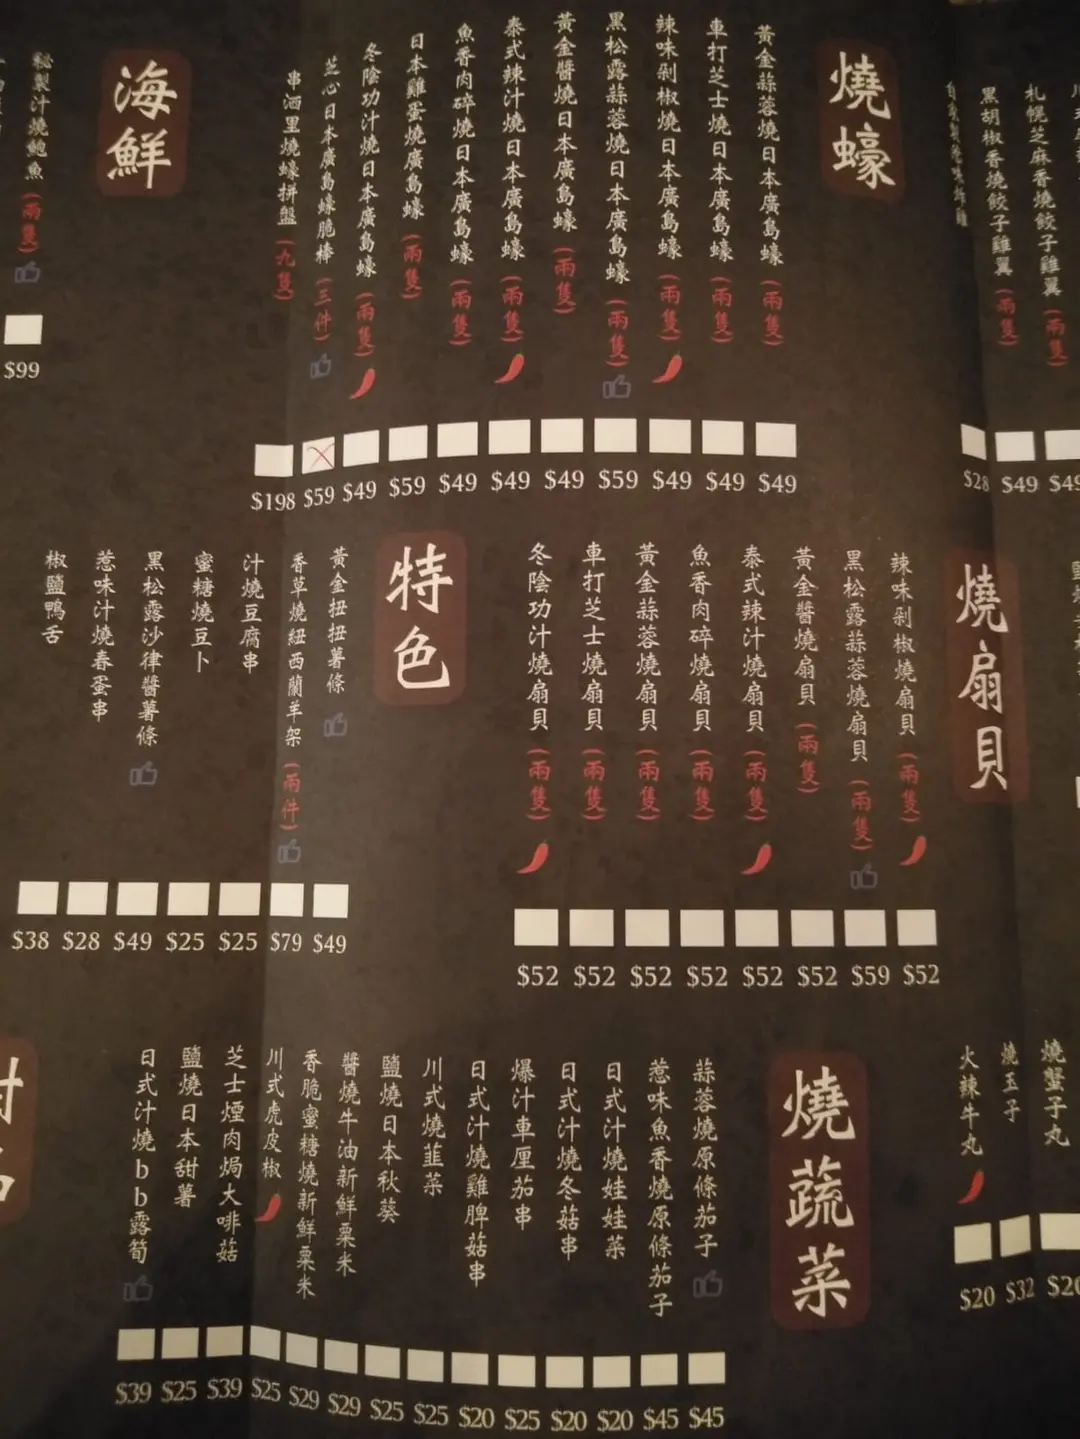 黑胡椒香燒餃子雞翼(兩隻)
$49
札幌芝麻香燒餃子雞翼(兩隻)
$28
燒蠔
黃金蒜蓉燒日本廣島蠔(兩隻)
$49
車打芝士燒日本廣島蠔(兩隻)
$49
辣味剁椒燒日本廣島蠔(兩隻)
$49
黑松露蒜蓉燒日本廣島蠔(兩隻)
$59
黃金醬燒日本廣島蠔(兩隻)
$49
泰式辣汁燒日本廣島蠔(兩隻)
$49
魚香肉碎燒日本廣島蠔(兩隻)
$49
日本雞蛋燒廣島蠔(兩隻)
$59
冬陰功汁燒日本廣島蠔(兩隻)
$49
芝心日本廣島蠔脆棒(三件)
$59
串酒里燒蠔拼盤(九隻)
$198
海鮮
秘製汁燒鮑魚(兩隻)
$99
燒扇貝
辣味剁椒燒扇貝(兩隻)
$52
黑松露蒜蓉燒扇貝(兩隻)
$59
黃金醬燒扇貝(兩隻)
$52
泰式辣汁燒扇貝(兩隻)
$52
魚香肉碎燒扇貝(兩隻)
$52
黃金蒜蓉燒扇貝(兩隻)
$52
車打芝士燒扇貝(兩隻)
$52
冬陰功汁燒扇貝(兩隻)
$52
特色
黃金扭扭薯條
$49
香草燒紐西蘭羊架(兩件)
$79
汁燒豆腐串
$25
蜜糖燒豆卜
$25
黑松露沙律醬薯條
$49
惹味汁燒春蛋串
$28
椒鹽鴨舌
$38
燒蟹子丸
$20
燒玉子
$32
火辣牛丸
$20
燒蔬菜
蒜蓉燒原條茄子
$45
惹味魚香燒原條茄子
$45
日式汁燒娃娃菜
$20
日式汁燒冬菇串
$20
爆汁車厘茄串
$25
日式汁燒雞脾菇串
$20
川式燒韭菜
$25
鹽燒日本秋葵
$25
醬燒牛油新鮮粟米
$29
香脆蜜糖燒新鮮粟米
$29
川式虎皮椒
$25
芝士煙肉焗大啡菇
$39
鹽燒日本甜薯
$25
日式汁燒bb露筍
$39